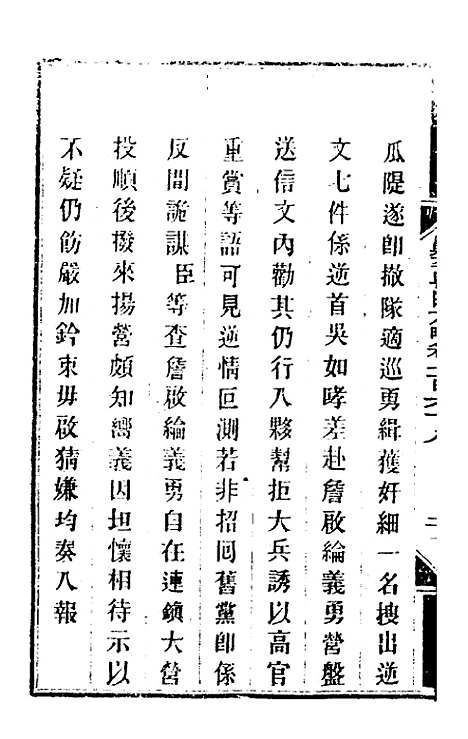 瓜隄遂卽撤隊適巡勇緝獲奸細一名搜出逆
文七件係逆首吳如孝差赴詹啟綸義勇營盤
送信文內勸其仍行入夥幫拒大兵誘以高官
重賞等語可見逆情叵測若非招同舊黨卽係
反間詭謀臣等查詹啟綸義勇自在連鎮大營
投順後撥來揚營頗知嚮義因坦懷相待示以
不疑仍飭嚴加鈐束毋啟猜嫌均奏入報